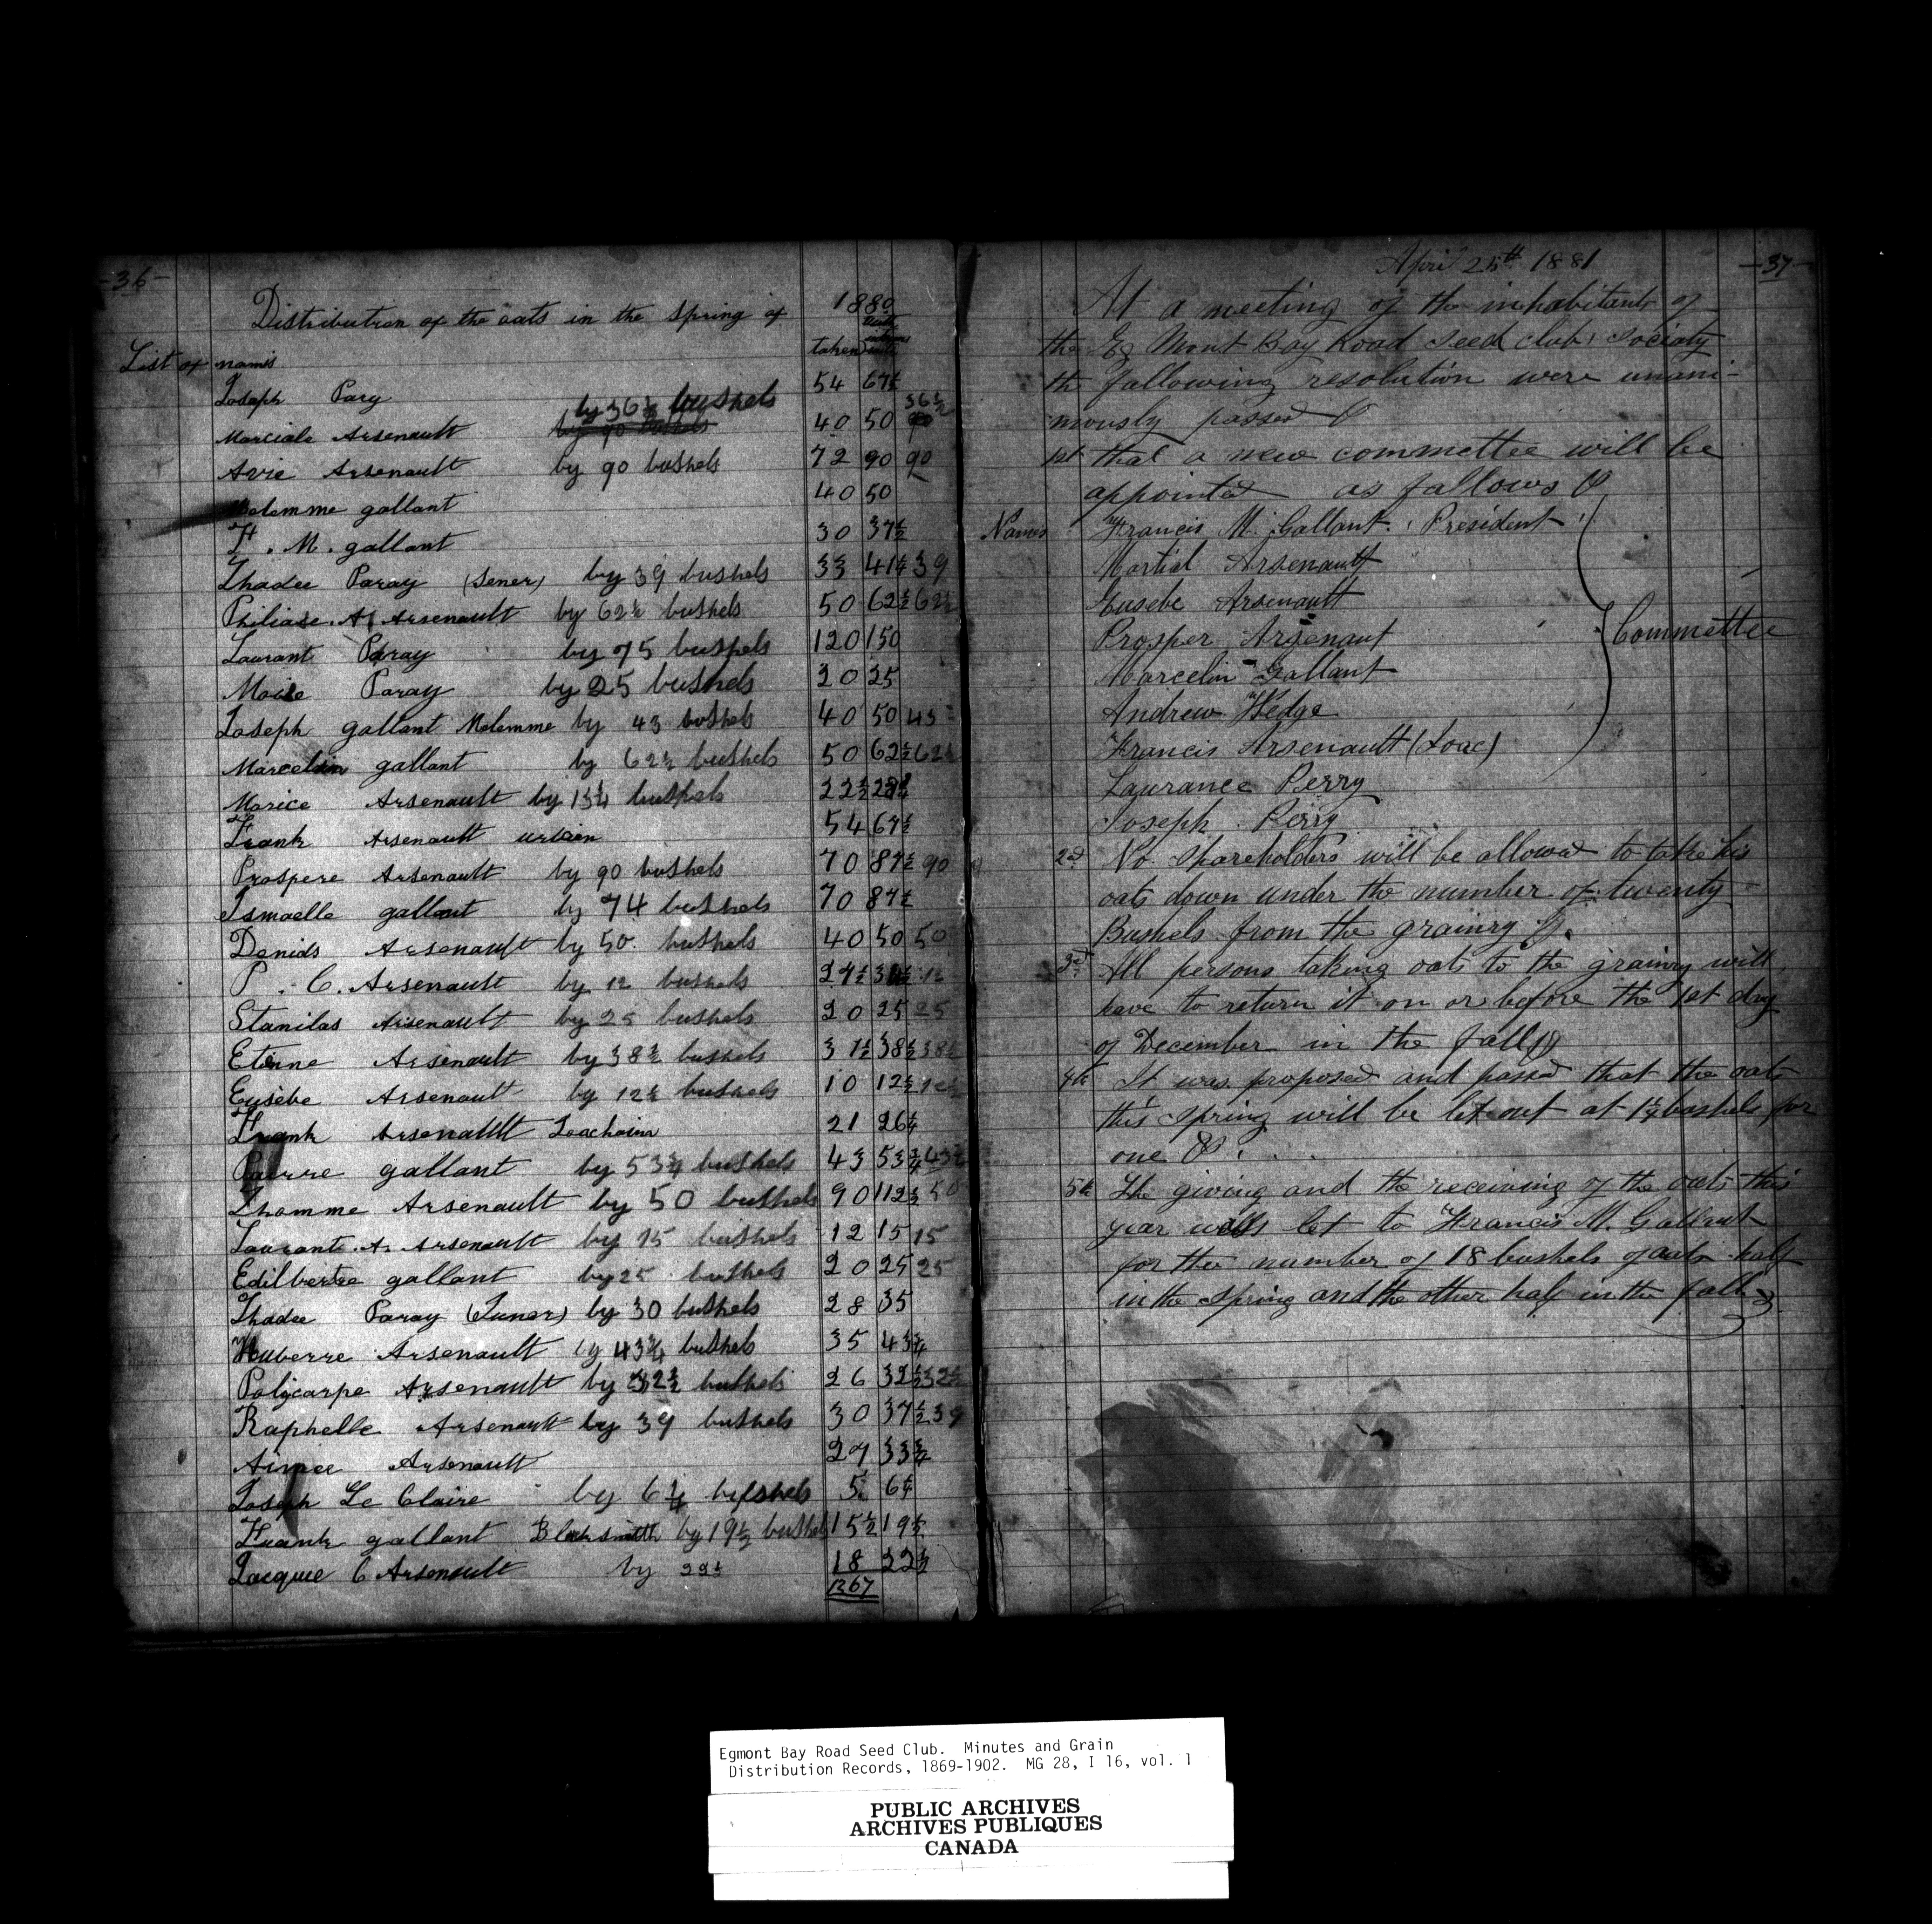 -36-
Distribution of the oats in the spring of 1880
List of names taken
Joseph Pary 54 67½
by 36½ bushels 36½
Marciale Arsenault by 90 bushels 40 50 90
Avie Arsenault by 90 bushels 72 90 90
Melemme gallant 40 50
F. M. gallant 30 37½
Thadee Paray (sener) by 39 bushels 33 41¼ 39
Philiase. A. Arsenault by 62½ bushels 50 62½ 62½
Laurant Paray by 75 bushels 120 150
Moise Paray by 25 bushels 20 25
Joseph gallant Melemme by 43 bushels 40 50 43
Marcelin gallant by 62½ bushels 50 62½ 62½
Marice Arsenault by 13¼ bushels 22½ 28¼
Frank Arsenault urbain 54 67½
Prospere Arsenault by 90 bushels 70 87½ 90
Ismaelle gallant by 74 bushels 70 87½
Denids Arsenault by 50. bushels 40 50 50
P. C. Arsenault by 12 bushels 27½ 12
Stanilas Arsenault by 25 bushels 20 25 25
Etenne Arsenault by 38½ bushels 31½ 38½ 38½
Eusebe Arsenault by 12½ bushels 10 12½ 12½
Frank Arsenault Joachaim 21 26¼
Pierre gallant by 53¾ bushels 43 53¾
Thomme Arsenault by 50 bushels 90 112½ 50
Laurant. A. Arsenault by 15 bushels 12 15 15
Edilbertre gallant by 25 bushels 20 25 25
Thadee Paray (Juner) by 30 bushels 28 35
Huberre Arsenault by 43¾ bushels 35 43¾
Policarpe Arsenault by 32½ bushels 26 32½ 32½
Raphelle Arsenault by 39 bushels 30 37½ 39
Aimee Arsenault 27 33¾
Joseph Le Claire by 6¼ bushels 5 6¼
Frank gallant Blacksmith by 19½ bushels 15½ 19½
Jacque C Arsenault by 22½ 18 22½
1367
-37-
April 25th 1881
At a meeting of the inhabitants of
the Eg Mont Bay Road Seed club, Society
the following resolution were unani-
mously passed
1st that a new commettee will be
appointed as follows
Names Francis M. Gallant. President
Martial Arsenault
Eusebe Arsenault
Prosper Arsenaut Commettee
Marcelin Gallant
Andrew Hedge
Francis Arsenault (Joac)
Laurance Perry
Joseph Perry
2nd No. Shareholders will be allowed to take his
oats down under the number of twenty
Bushels from the grainry
3rd All persons taking oats to the grainry will
have to return it on or before the 1st day
of December in the fall
4th It was proposed and passed that the oats
this spring will be let out at 1¼ bushels for
one
5th The giving and the receiving of the oats this
year was let to Francis M. Gallant
for the number of 18 bushels of oats half
in the spring and the other half in the fall
Egmont Bay Road Seed Club. Minutes and Grain
Distribution Records, 1869-1902. MG 28, I 16, vol. 1
PUBLIC ARCHIVES
ARCHIVES PUBLIQUES
CANADA